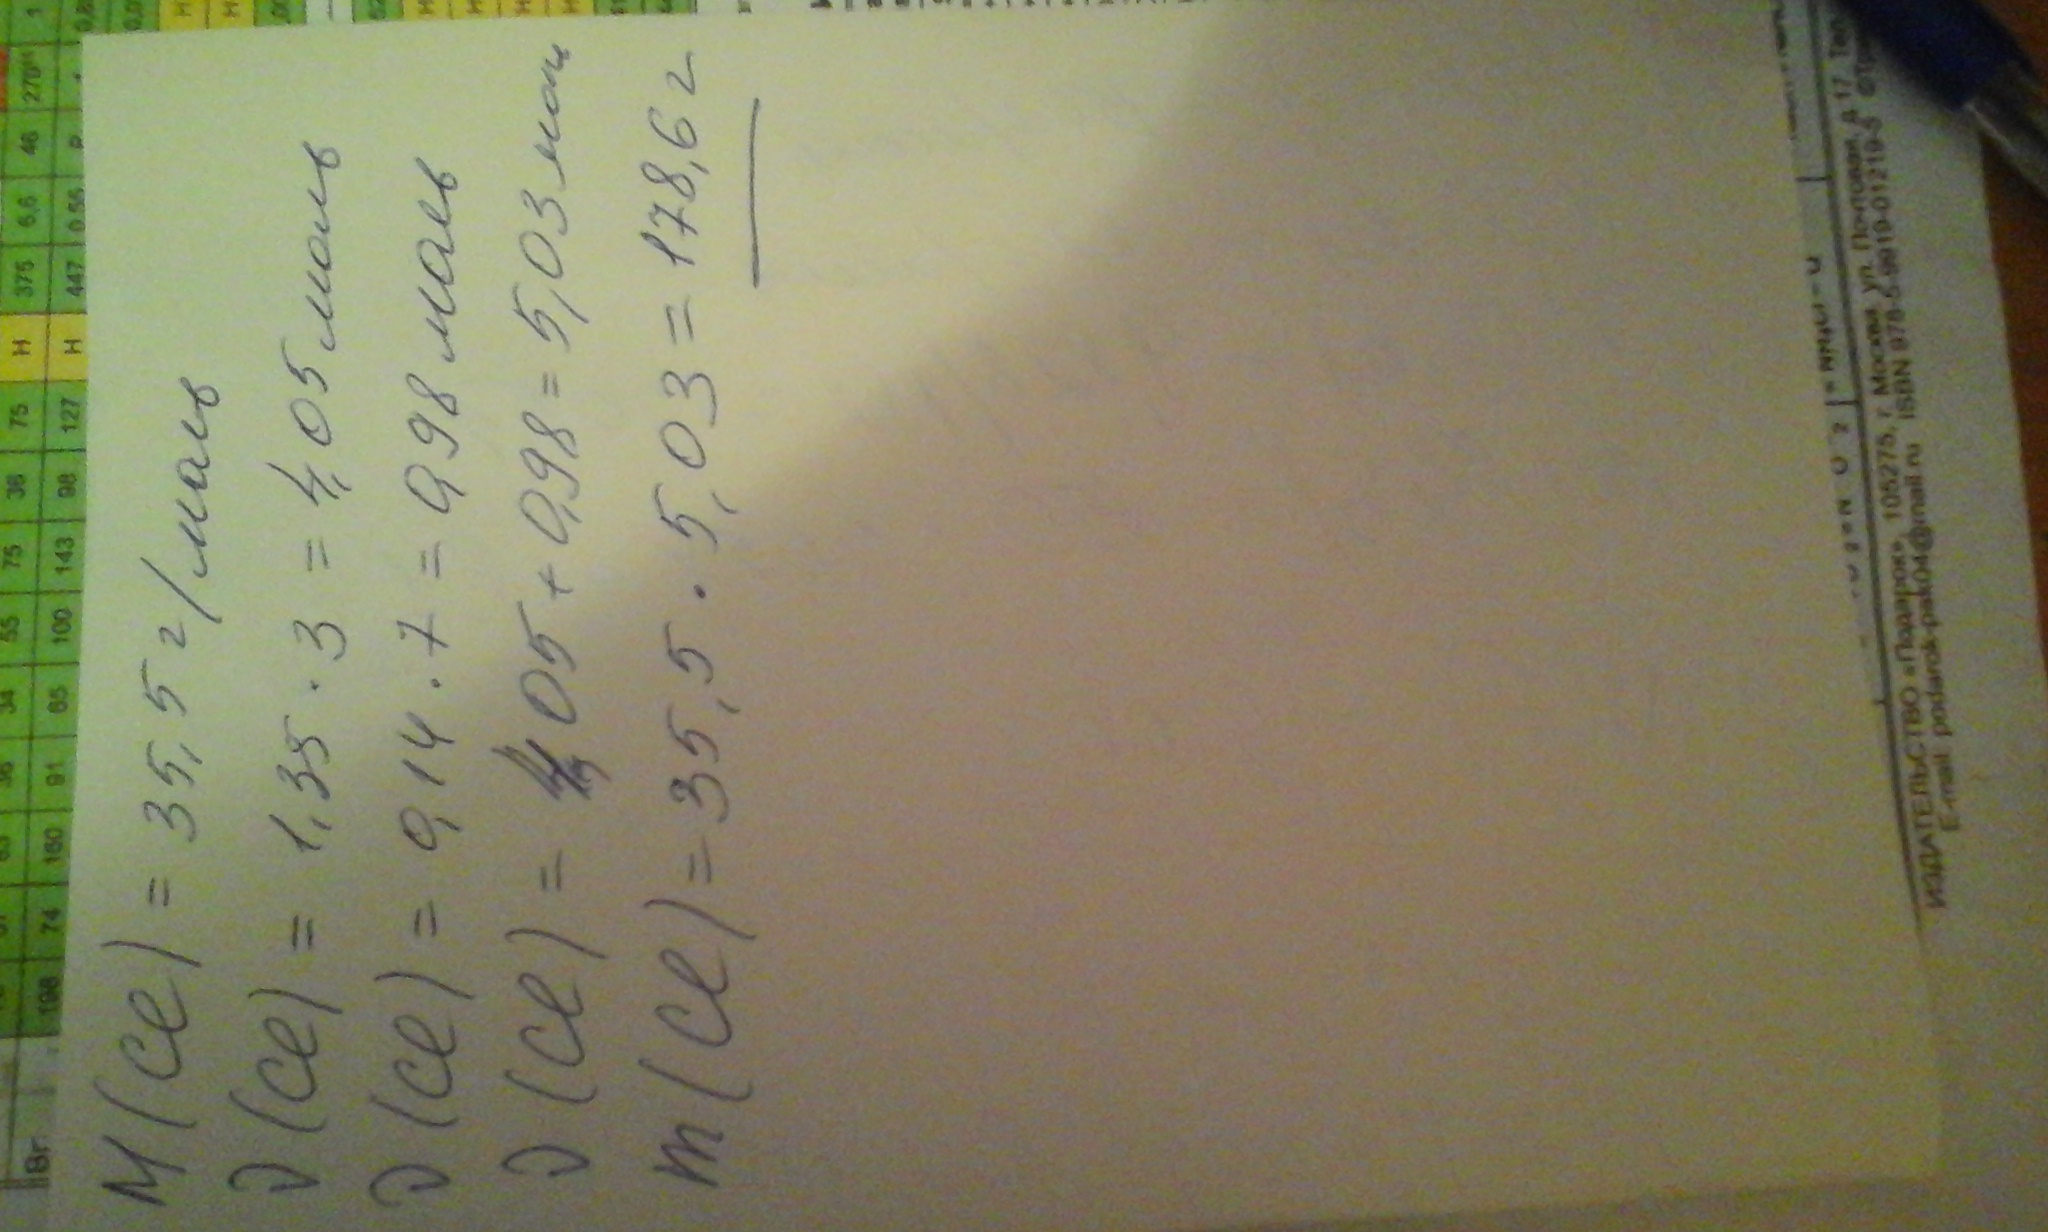 M(Cl) = 35,5 г/моль
ν(Cl) = 1,35 · 3 = 4,05 моль
ν(Cl) = 0,14 · 7 = 0,98 моль
ν(Cl) = 4,05 + 0,98 = 5,03 моль
m(Cl) = 35,5 · 5,03 = 178,6 г
ИЗДАТЕЛЬСТВО «Подарок», 105275, г. Москва, ул. Почтовая, д. 17
E-mail: podarok-pak04@mail.ru ISBN 978-5-9919-01219-5
Br
198 74 160 91 65 100 143 98 127 H 447 0,56
55 75 36 75 H 375 6,6 46 270